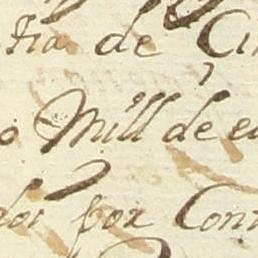 tia de Ci
o Mill de e
dos por Con